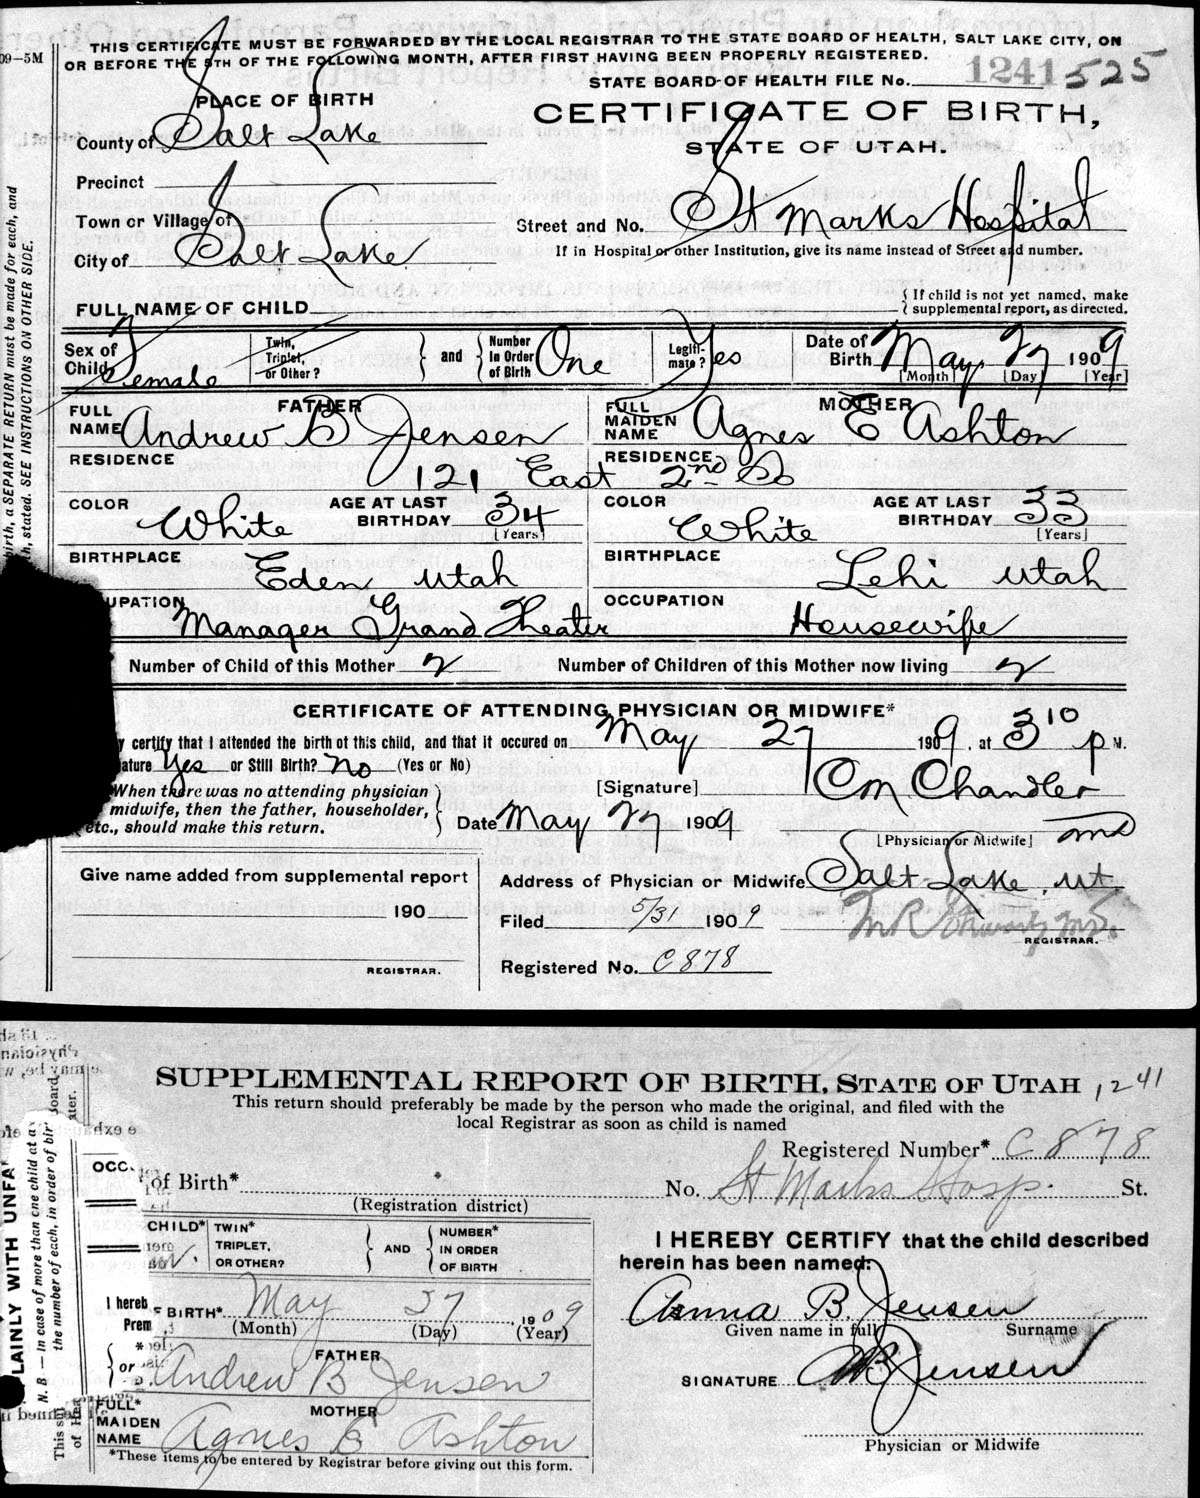 09–5M
THIS CERTIFICATE MUST BE FORWARDED BY THE LOCAL REGISTRAR TO THE STATE BOARD OF HEALTH, SALT LAKE CITY, ON
OR BEFORE THE 5TH OF THE FOLLOWING MONTH, AFTER FIRST HAVING BEEN PROPERLY REGISTERED.
STATE BOARD OF HEALTH FILE No. 1241 525
PLACE OF BIRTH
CERTIFICATE OF BIRTH,
STATE OF UTAH.
County of Salt Lake
Precinct
Town or Village of
Street and No. St Marks Hospital
City of Salt Lake
If in Hospital or other Institution, give its name instead of Street and number.
FULL NAME OF CHILD { If child is not yet named, make supplemental report, as directed.
Sex of Child Female Twin, Triplet, or Other? } and { Number in Order of Birth One Legiti-mate? Yes Date of Birth May 27 1909
[Month] [Day] [Year]
FATHER MOTHER
FULL NAME Andrew B Jensen FULL MAIDEN NAME Agnes E Ashton
RESIDENCE 121 East 2nd So RESIDENCE
COLOR White AGE AT LAST BIRTHDAY 34 [Years] COLOR White AGE AT LAST BIRTHDAY 33 [Years]
BIRTHPLACE Eden Utah BIRTHPLACE Lehi Utah
UPATION Manager Grand Theater OCCUPATION Housewife
Number of Child of this Mother 2 Number of Children of this Mother now living 2
CERTIFICATE OF ATTENDING PHYSICIAN OR MIDWIFE*
y certify that I attended the birth of this child, and that it occured on May 27 1909, at 3 10 P M.
ature Yes or Still Birth? No (Yes or No)
[Signature] O M Chandler
When there was no attending physician
midwife, then the father, householder,
etc., should make this return.
Date May 27 1909 MD
[Physician or Midwife]
Give name added from supplemental report
Address of Physician or Midwife Salt Lake, Ut.
190
Filed 5/31 1909
REGISTRAR.
REGISTRAR.
Registered No. C 878
birth, a SEPARATE RETURN must be made for each, and
th, stated. SEE INSTRUCTIONS ON OTHER SIDE.
SUPPLEMENTAL REPORT OF BIRTH, STATE OF UTAH 1241
This return should preferably be made by the person who made the original, and filed with the
local Registrar as soon as child is named
Registered Number* C 878
of Birth* No. St Marks Hosp. St.
(Registration district)
CHILD* TWIN* TRIPLET, OR OTHER? } AND { NUMBER* IN ORDER OF BIRTH
I HEREBY CERTIFY that the child described
herein has been named:
BIRTH* May 27, 1909
(Month) (Day) (Year)
Anna B. Jensen
Given name in full Surname
FATHER
Andrew B Jensen
SIGNATURE AB Jensen
FULL* MAIDEN NAME MOTHER
Agnes E Ashton
Physician or Midwife
*These items to be entered by Registrar before giving out this form.
LAINLY WITH UNFA
N. B.—In case of more than one child at a
the number of each, in order of bir
OCC
I hereb
Prem
or